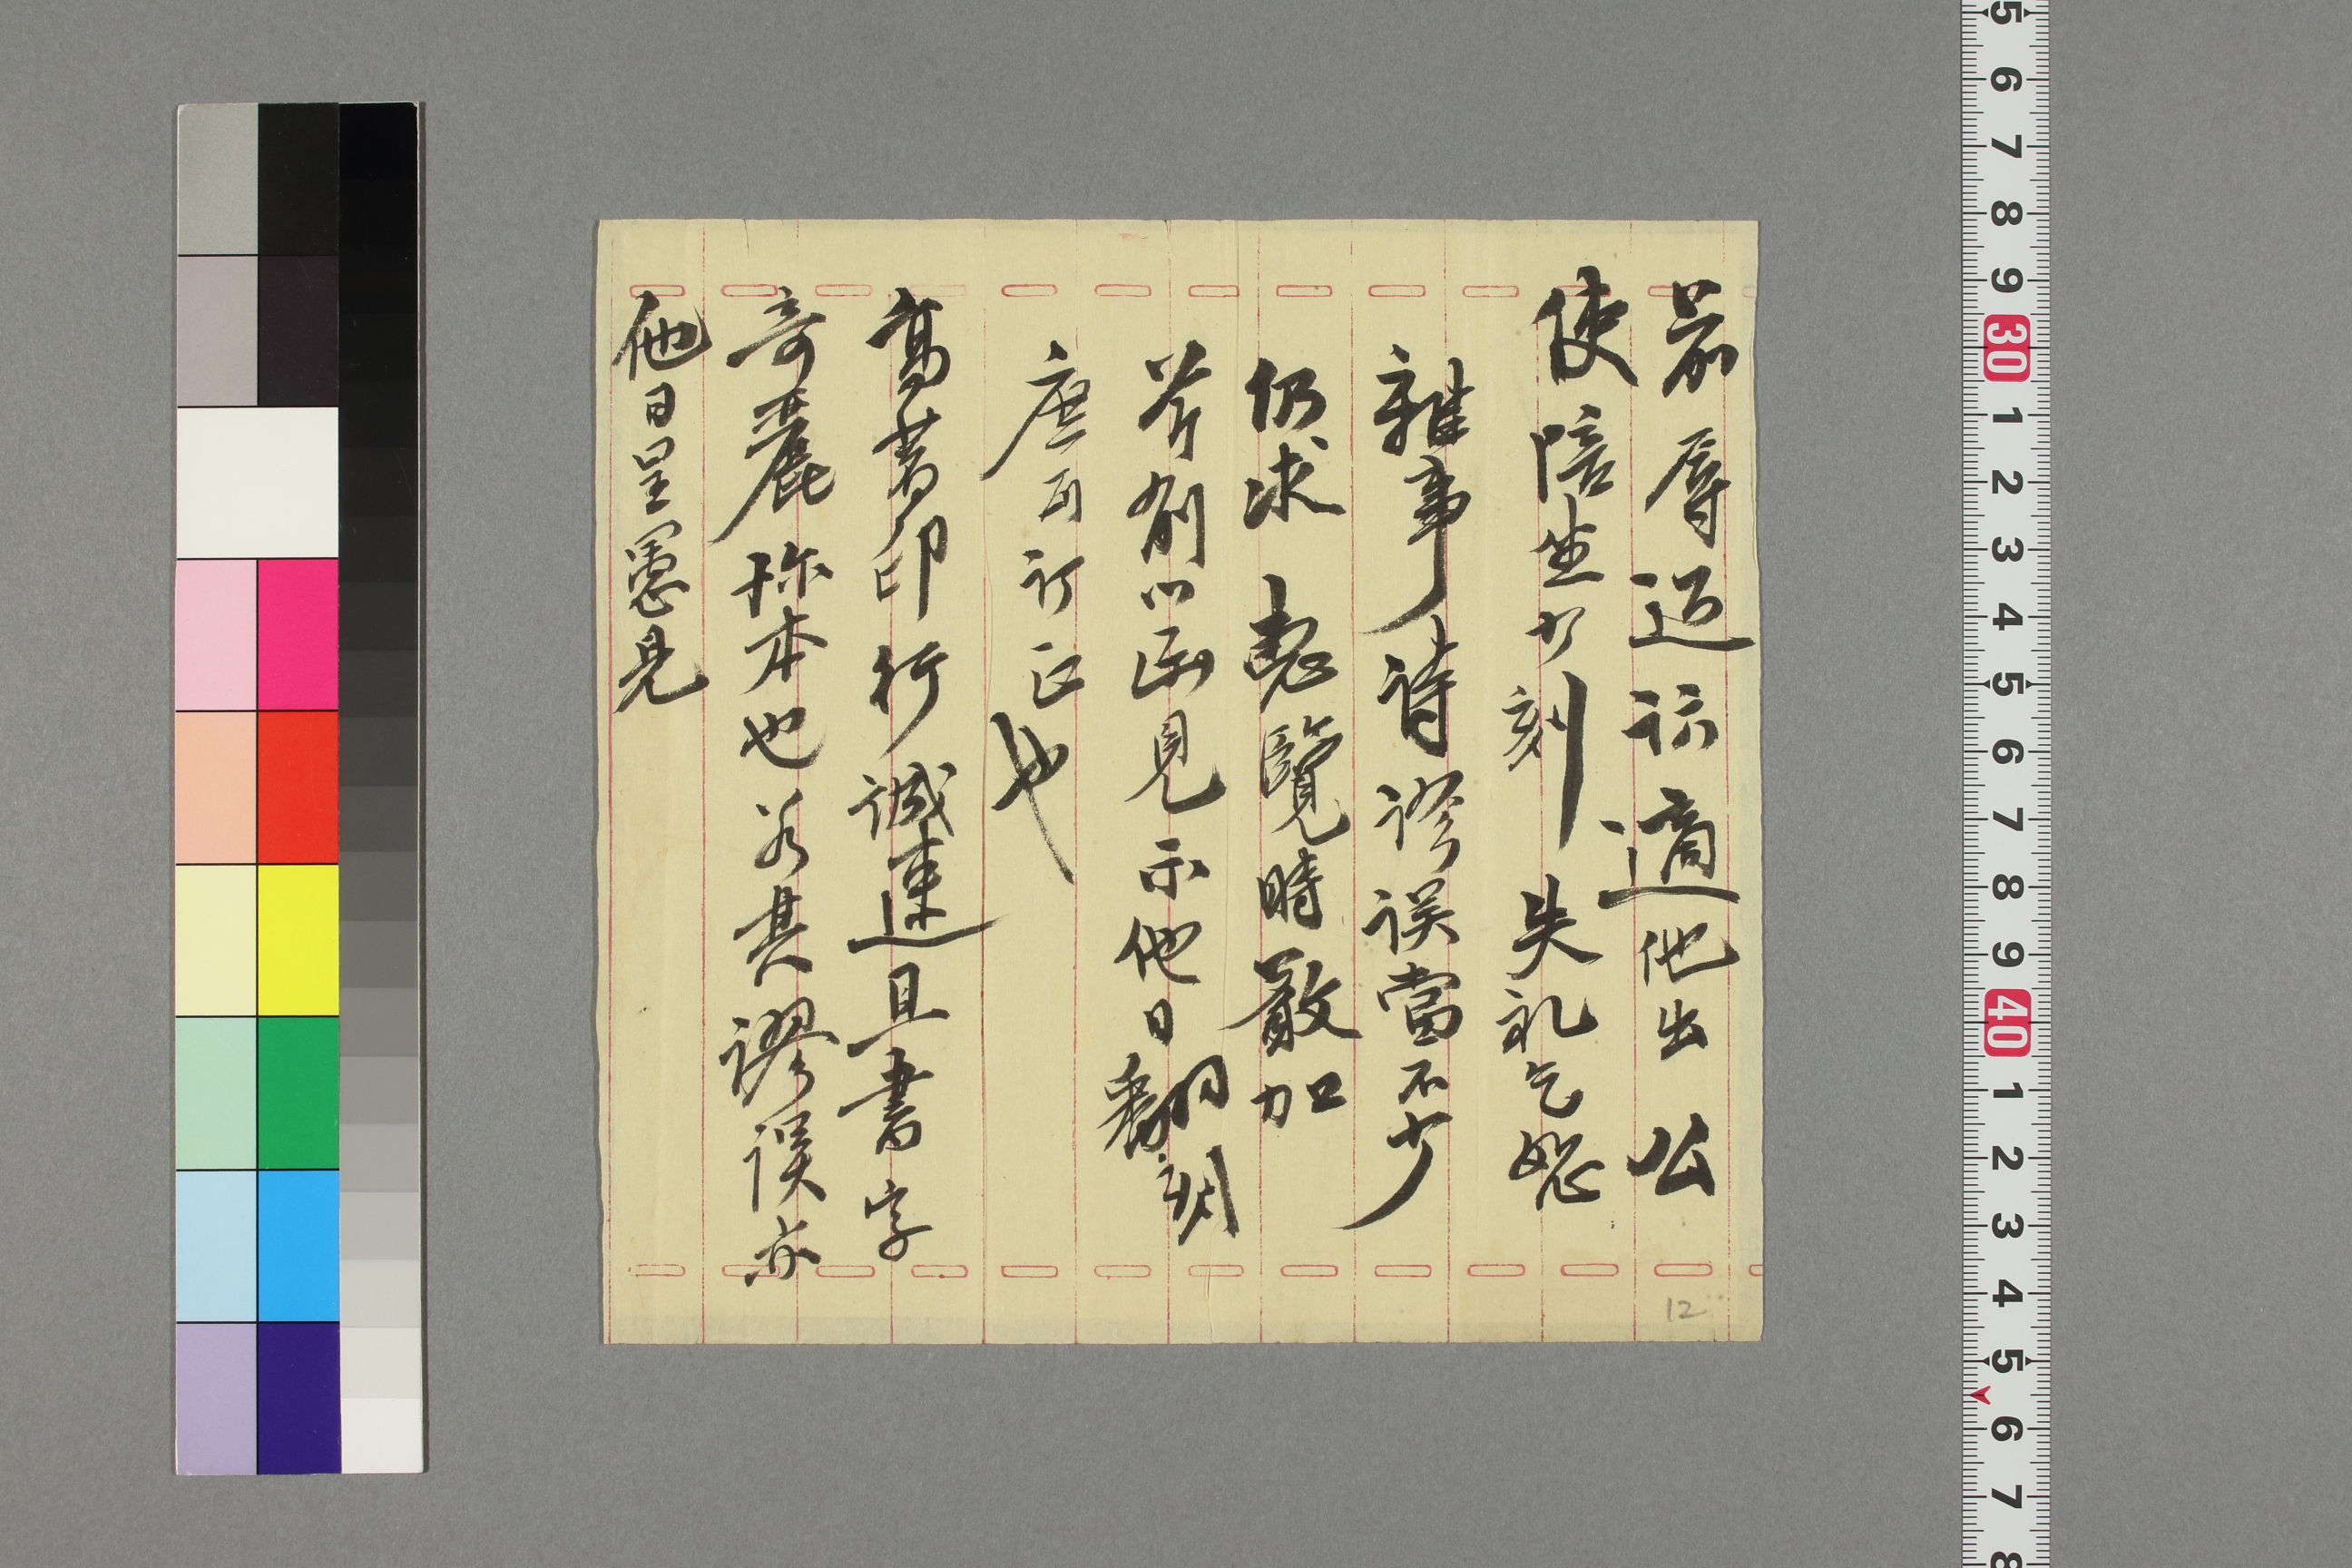 前辱迈訪適他出公
使陪坐少刻失礼乞恕
雜事詩謬误當不少
仍求惠覽時嚴加
斧削以函見示他日翻刻
庶可订正也
高著印行誠速且書字
奇麗珎本也若其謬误亦
他日呈愚見
12
5 6 7 8 9 30 1 2 3 4 5 6 7 8 9 40 1 2 3 4 5 6 7 8